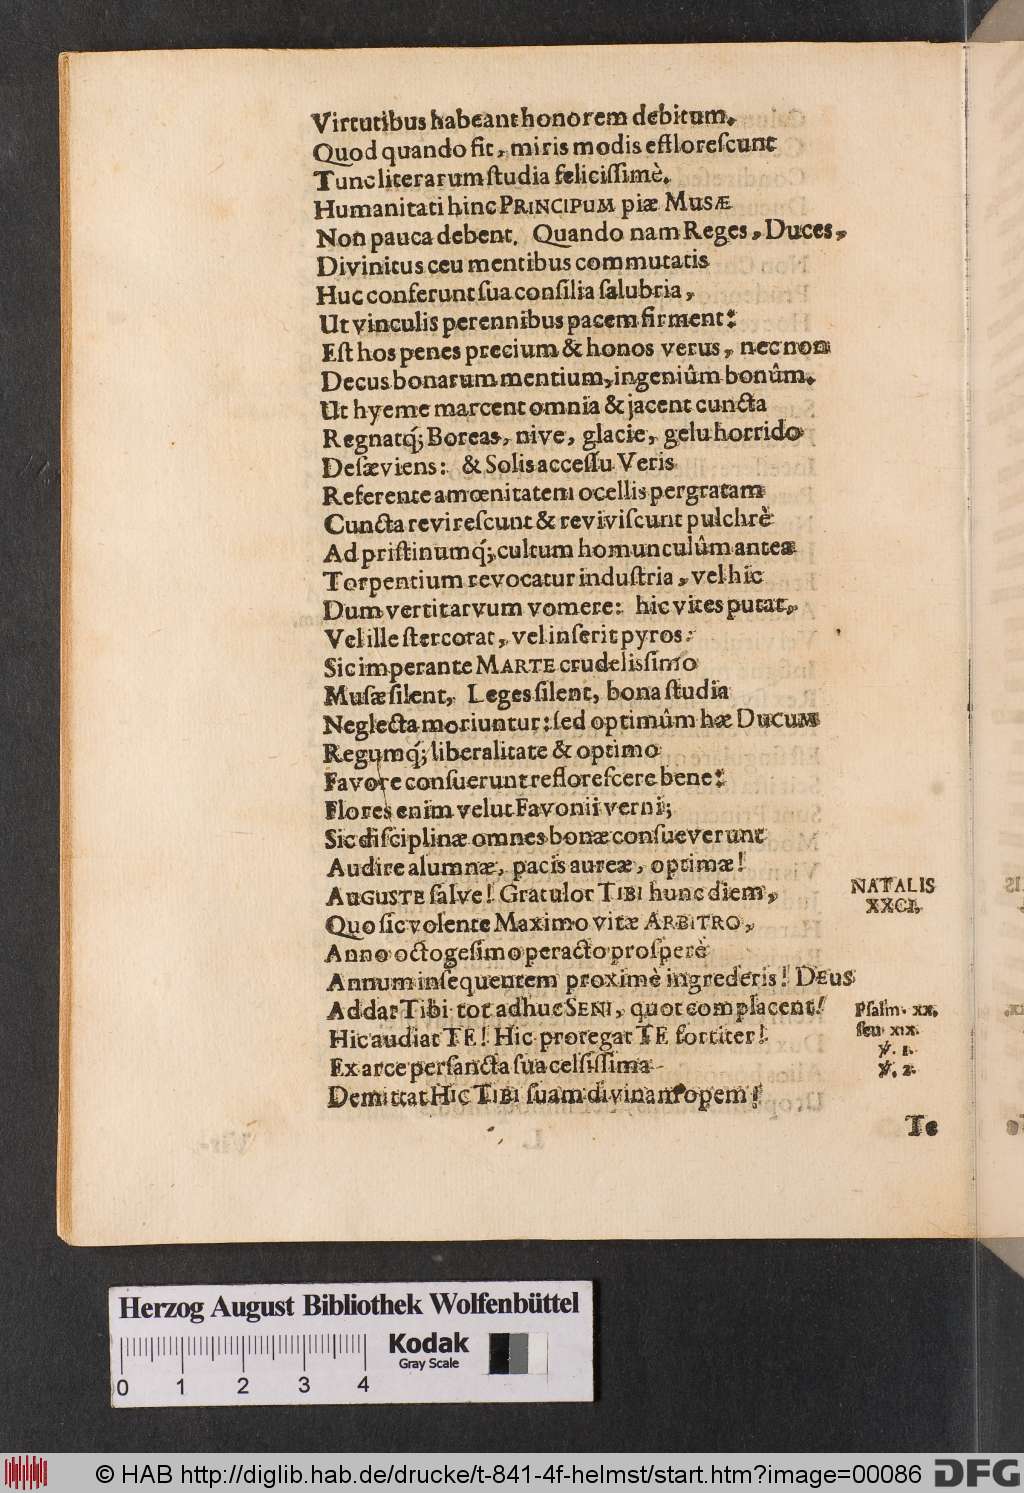 Virtutibus habeant honorem debitum.
Quod quando fit, miris modis effloreſcunt
Tunc literarum ſtudia feliciſſimè.
Humanitati hinc PRINCIPUM piæ MusÆ
Non pauca debent. Quando nam Reges, Duces,
Divinitus ceu mentibus commutatis
Huc conferunt ſua conſilia ſalubria,
Ut vinculis perennibus pacem firment:
Eſt hos penes precium & honos verus, nec non
Decus bonarum mentium, ingeniûm bonûm.
Ut hyeme marcent omnia & jacent cuncta
Regnatq́; Boreas, nive, glacie, gelu horrido
Deſæviens: & Solis acceſſu Veris
Referente amœnitatem ocellis pergratam
Cuncta revireſcunt & reviviſcunt pulchrè
Ad priſtinumq́; cultum homunculûm antea
Torpentium revocatur induſtria, vel hic
Dum vertit arvum vomere: hic vites putat,
Vel ille ſtercorat, vel inſerit pyros:
Sic imperante MARTE crudelisſimo
Muſæ ſilent, Leges ſilent, bona ſtudia
Neglecta moriuntur: ſed optimûm hæ DUCUM
Regumq́; liberalitate & optimo
Favore conſuerunt refloreſcere bene:
Flores enim velut Favonii verni;
Sic diſciplinæ omnes bonæ conſueverunt
Audire alumnæ, pacis aureæ, optimæ!
AUGUSTE ſalve! Gratulor TIBI hunc diem,
NATALIS
XXCI.
Quo ſic volente Maximo vitæ ARBITRO,
Anno octogeſimo peracto proſperè
Annum inſequentem proximè ingrederis! DEUS
Addat Tibi tot adhuc SENI, quot complacent!
Pſalm. xx.
ſeu xix.
Hic audiat TE! Hic protegat TE fortiter!
℣. 1.
Ex arce perſancta ſua celſisſima
℣. 2.
Demittat HIC TIBI ſuam divinam opem!
Te
Herzog August Bibliothek Wolfenbüttel
Kodak
Gray Scale
0 1 2 3 4
© HAB http://diglib.hab.de/drucke/t-841-4f-helmst/start.htm?image=00086
DFG